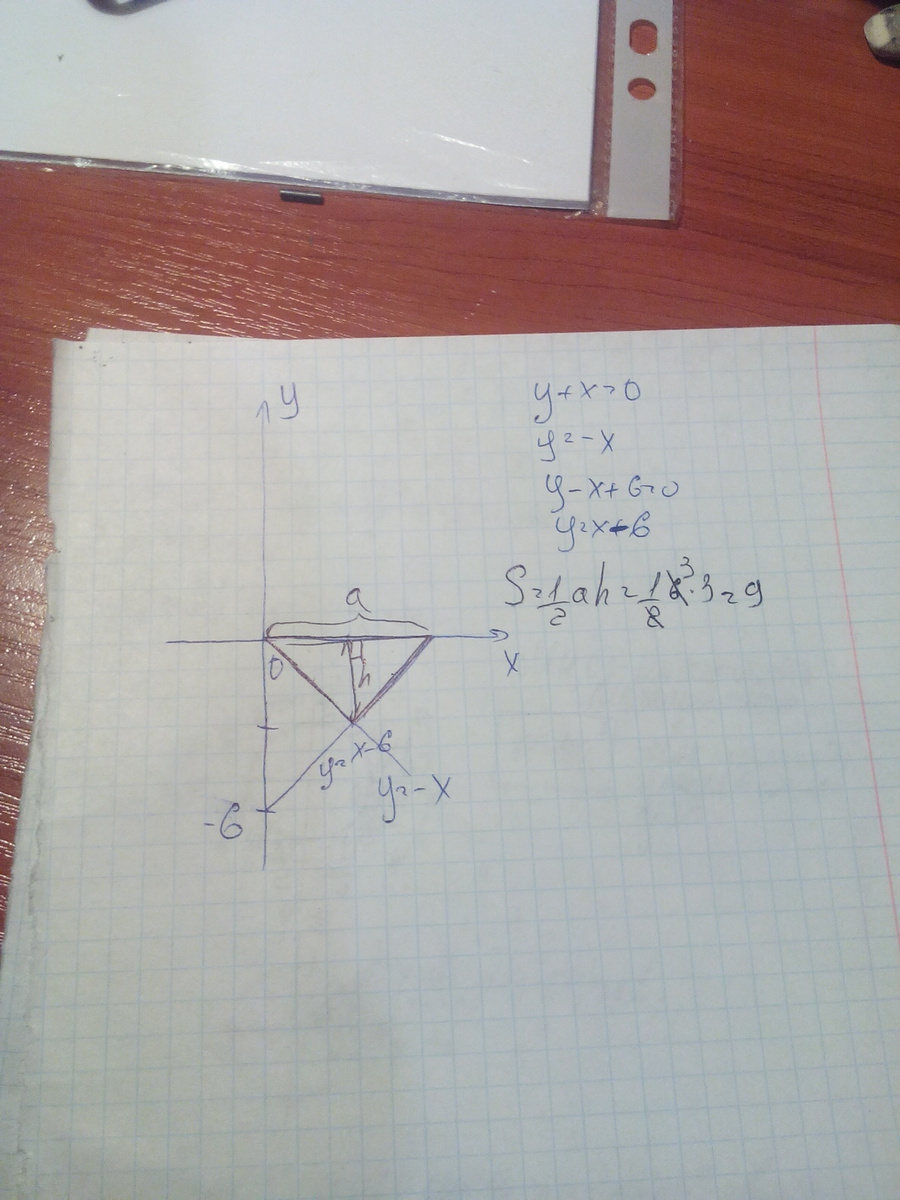 y
y+x=0
y=-x
y-x+6=0
y=x-6
S=1/2 ah=1/2 6 3 ·3=9
a
0
h
x
y=x-6
y=-x
-6